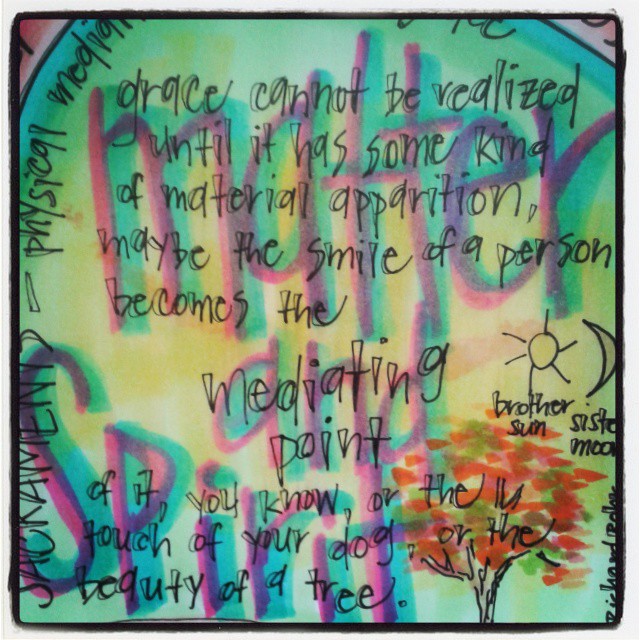 grace cannot be realized
until it has some kind
of material apparition,
maybe the smile of a person
becomes the
mediating
point
of it, you know, or the lu
touch of your dog, or the
beauty of a tree.
matter
and
Spirit
SACRAMENTS - physical median
brother
sun
siste
moon
Richard Rohr